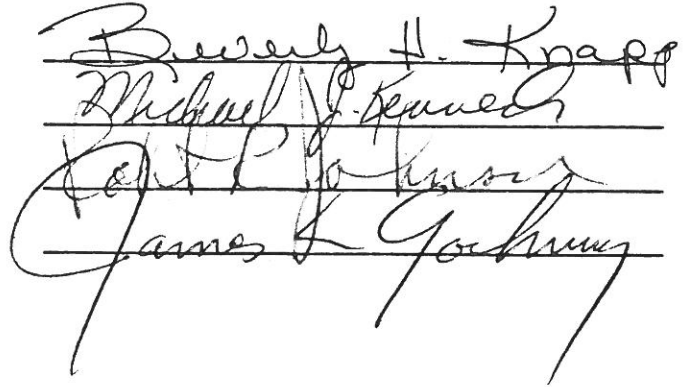 Beverly H. Knapp
Michael J. Kennedy
Robt L Johnson
James L